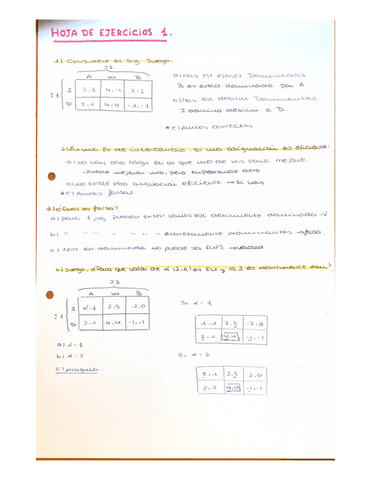 HOJA DE EJERCICIOS 1.
1) Considere el sig. juego.
J2
A M B
J1 I 3,3
D 2,1 4,4 -1,-1
a) Hay est. estrict. Dominadas
B es estrict. dominada por A
b) Hay est. debilm. Dominantes
I domina debilm. a D.
c) Ambos correctas
2) En una Ec. de intercambio, si una asignación es eficiente:
a) no hay otra asign en la que uno de los cons. mejore
puede mejorar uno, pero empeorando otro
b) no existe otra asignación eficiente → Si hay
c) Ambos falsas
3) ¿Cuál es falsa?
a) para 1 jug. pueden existir varias est. debilmente dominadas - V
b) " " " " " " estrictamente dominantes → falso
c) 1 est. dominada no puede ser ENPS → verdad
4) Juego, ¿Para que valor de α (2,1) es EN y la I es debilmente dom?
J2
A M B
J1 I α,1 2,3 -2,0
D 2,1 4,4 -1,-1
a) α=1
b) α=2
c) ninguna
Si α=1
1,1 2,3 -2,0
2,1 4,4 -1,-1
Si α=2
2,1 2,3 -2,0
2,1 4,4 -1,-1